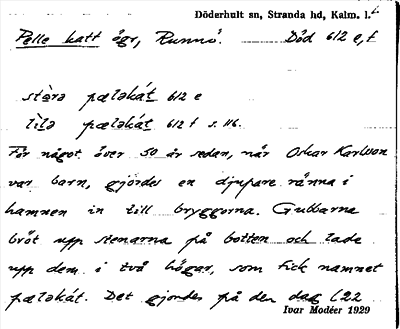 Döderhult sn, Stranda hd, Kalm. l.
Pelle katt ögr, Runnö. Död 612 e, f
stɔrə pæləkát 612 e
lilə pæləkát 612 f s. 116.
För något över 50 år sedan, när Oskar Karlsson
var barn, gjordes en djupare ränna i
hamnen in till bryggorna. Gubbarna
bröt upp stenarna på botten och lade
upp dem i två högar, som fick namnet
pæləkát. Det gjordes på den dag (22
Ivar Modéer 1929